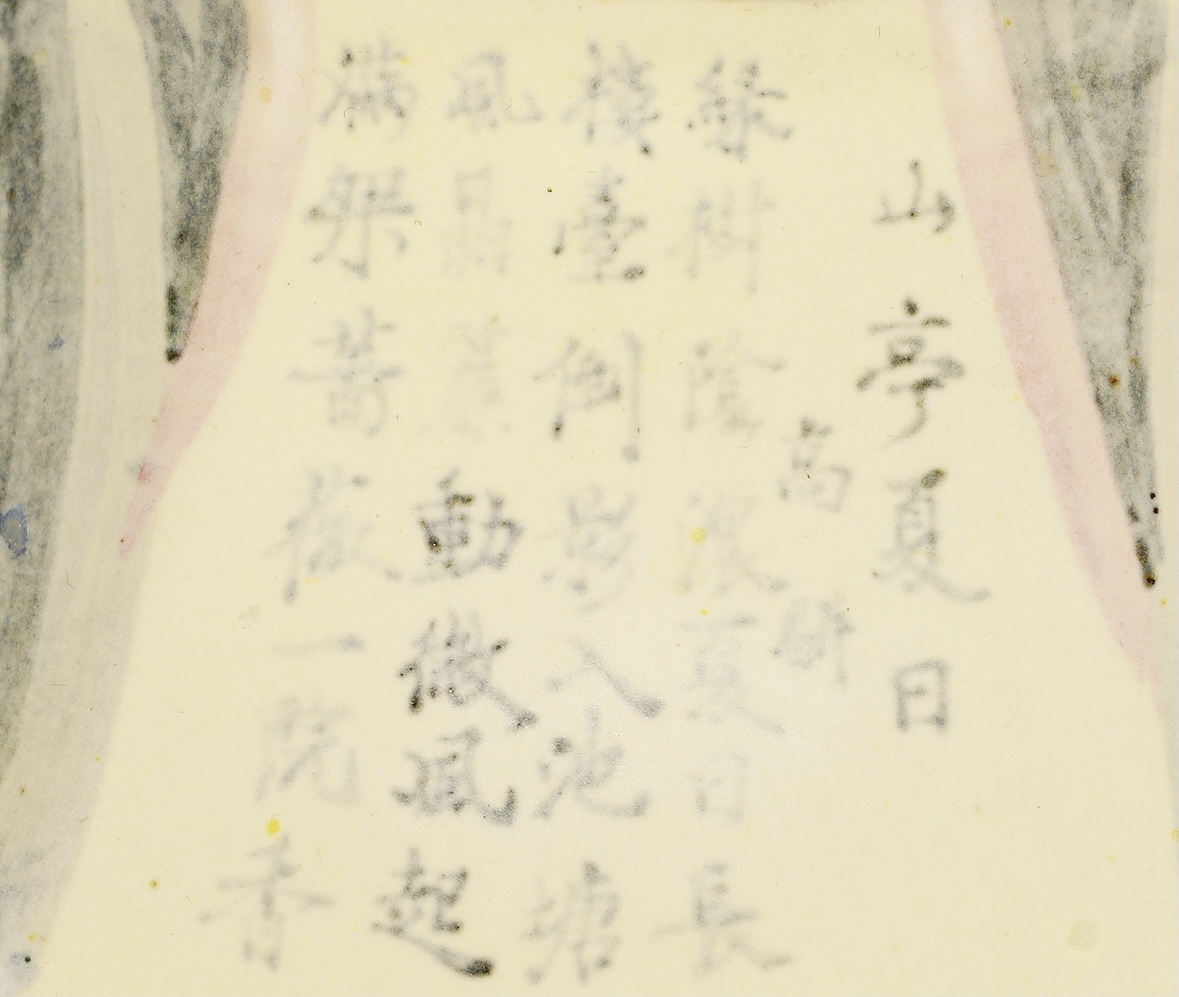 山亭夏日
高駢
綠樹陰濃夏日長
樓臺倒影入池塘
風晶簾動微風起
滿架薔薇一院香